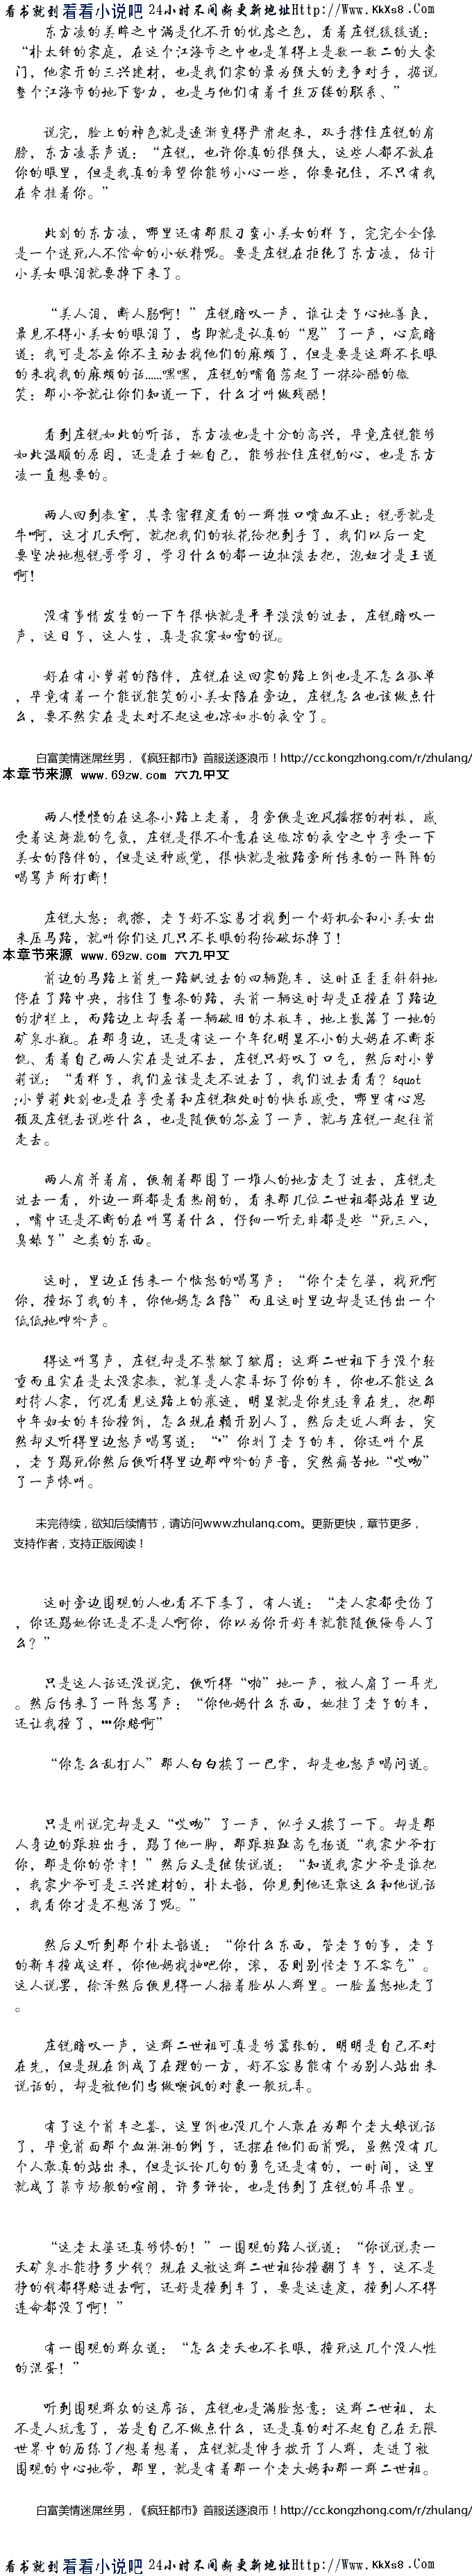 看书就到 看看小说吧 24小时不间断更新地址Http://Www.KkXs8.Com
东方凌的美眸之中满是化不开的忧虑之色，看着庄锐缓缓道：
“朴太锌的家庭，在这个江海市之中也是算得上是数一数二的大豪
门，他家开的三兴建材，也是我们家的最为强大的竞争对手，据说
整个江海市的地下势力，也是与他们有着千丝万缕的联系、”
说完，脸上的神色就是逐渐变得严肃起来，双手撑住庄锐的肩
膀，东方凌柔声道：“庄锐，也许你真的很强大，这些人都不放在
你的眼里，但是我真的希望你能够小心一些，你要记住，不只有我
在牵挂着你。”
此刻的东方凌，哪里还有那股刁蛮小美女的样子，完完全全像
是一个迷死人不偿命的小妖精呢。要是庄锐在拒绝了东方凌，估计
小美女眼泪就要掉下来了。
“美人泪，断人肠啊！”庄锐暗叹一声，谁让老子心地善良，
最见不得小美女的眼泪了，当即就是认真的“恩”了一声，心底暗
道：我可是答应你不主动去找他们的麻烦了，但是要是这群不长眼
的来找我的麻烦的话……嘿嘿，庄锐的嘴角荡起了一抹冷酷的微
笑：那小爷就让你们知道一下，什么才叫做残酷！
看到庄锐如此的听话，东方凌也是十分的高兴，毕竟庄锐能够
如此温顺的原因，还是在于她自己，能够拴住庄锐的心，也是东方
凌一直想要的。
两人回到教室，其亲密程度看的一群牲口喷血不止：锐哥就是
牛啊，这才几天啊，就把我们的校花给把到手了，我们以后一定
要坚决地想锐哥学习，学习什么的都一边扯淡去把，泡妞才是王道
啊！
没有事情发生的一下午很快就是平平淡淡的过去，庄锐暗叹一
声，这日子，这人生，真是寂寞如雪的说。
好在有小萝莉的陪伴，庄锐在这回家的路上倒也是不怎么孤单
，毕竟有着一个能说能笑的小美女陪在旁边，庄锐怎么也该做点什
么，要不然实在是太对不起这也凉如水的夜空了。
白富美情迷屌丝男，《疯狂都市》首服送逐浪币！http://cc.kongzhong.com/r/zhulang/
本章节来源 www.69zw.com 六九中文
两人慢慢的在这条小路上走着，身旁便是迎风摇摆的树枝，感
受着这旖旎的气氛，庄锐是很不介意在这微凉的夜空之中享受一下
美女的陪伴的，但是这种感觉，很快就是被路旁所传来的一阵阵的
喝骂声所打断！
庄锐大怒：我擦，老子好不容易才找到一个好机会和小美女出
来压马路，就叫你们这几只不长眼的狗给破坏掉了！
本章节来源 www.69zw.com 六九中文
前边的马路上首先一路飙过去的四辆跑车，这时正歪歪斜斜地
停在了路中央，挡住了整条的路，头前一辆这时却是正撞在了路边
的护栏上，而路边上却丢着一辆破旧的木板车，地上散落了一地的
矿泉水瓶。在那身边，还是有这一个年纪明显不小的大妈在不断求
饶、看着自己两人实在是过不去，庄锐只好叹了口气，然后对小萝
莉说：“看样子，我们应该是走不过去了，我们过去看看？&quot
;小萝莉此刻也是在享受着和庄锐独处时的快乐感受，哪里有心思
顾及庄锐去说些什么，也是随便的答应了一声，就与庄锐一起往前
走去。
两人肩并着肩，便朝着那围了一堆人的地方走了过去，庄锐走
过去一看，外边一群都是看热闹的，看来那几位二世祖都站在里边
，嘴中还是不断的在叫骂着什么，仔细一听无非都是些“死三八，
臭婊子”之类的东西。
这时，里边正传来一个恼怒的喝骂声：“你个老乞婆，找死啊
你，撞坏了我的车，你他妈怎么陪”而且这时里边却是还传出一个
低低地呻吟声。
得这叫骂声，庄锐却是不禁皱了皱眉：这群二世祖下手没个轻
重而且实在是太没家教，就算是人家弄坏了你的车，你也不能这么
对待人家，何况看见这路上的痕迹，明显就是你先违章在先，把那
中年妇女的车给撞倒，怎么现在赖开别人了，然后走近人群去，突
然却又听得里边怒声喝骂道：“•”你刬了老子的车，你还叫个屁
，老子踢死你然后便听得里边那呻吟的声音，突然痛苦地“哎呦”
了一声惨叫。
未完待续，欲知后续情节，请访问www.zhulang.com。更新更快，章节更多，
支持作者，支持正版阅读！
这时旁边围观的人也看不下去了，有人道：“老人家都受伤了
，你还踢她你还是不是人啊你，你以为你开好车就能随便侮辱人了
么？”
只是这人话还没说完，便听得“啪”地一声，被人扇了一耳光
。然后传来了一阵怒骂声：“你他妈什么东西，她挂了老子的车，
还让我撞了，•••你赔啊”
“你怎么乱打人”那人白白挨了一巴掌，却是也怒声喝问道。
只是刚说完却是又“哎呦”了一声，似乎又挨了一下。却是那
人身边的跟班出手，踢了他一脚，那跟班趾高气扬道“我家少爷打
你，那是你的荣幸！”然后又是继续说道：“知道我家少爷是谁把
，我家少爷可是三兴建材的，朴太韶，你见到他还敢这么和他说话
，我看你才是不想活了呢。”
然后又听到那个朴太韶道：“你什么东西，管老子的事，老子
的新车撞成这样，你他妈找抽吧你，滚，否则别怪老子不客气”。
这人说罢，徐泽然后便见得一人捂着脸从人群里。一脸羞怒地走了
。
庄锐暗叹一声，这群二世祖可真是够嚣张的，明明是自己不对
在先，但是现在倒成了在理的一方，好不容易能有个为别人站出来
说话的，却是被他们当做嘲讽的对象一般玩弄。
有了这个前车之鉴，这里倒也没几个人敢在为那个老大娘说话
了，毕竟前面那个血淋淋的例子，还摆在他们面前呢，虽然没有几
个人敢真的站出来，但是议论几句的勇气还是有的，一时间，这里
就成了菜市场般的喧闹，许多评论，也是传到了庄锐的耳朵里。
“这老太婆还真够惨的！”一围观的路人说道：“你说说卖一
天矿泉水能挣多少钱？现在又被这群二世祖给撞翻了车子，这不是
挣的钱都得赔进去啊，还好是撞到车了，要是这速度，撞到人不得
连命都没了啊！”
有一围观的群众道：“怎么老天也不长眼，撞死这几个没人性
的混蛋！”
听到围观群众的这席话，庄锐也是满脸怒意：这群二世祖，太
不是人玩意了，若是自己不做点什么，还是真的对不起自己在无限
世界中的历练了/想着想着，庄锐就是伸手拨开了人群，走进了被
围观的中心地带，那里，就是有着那一个老大妈和那一群二世祖。
白富美情迷屌丝男，《疯狂都市》首服送逐浪币！http://cc.kongzhong.com/r/zhulang/
看书就到 看看小说吧 24小时不间断更新地址Http://Www.KkXs8.Com